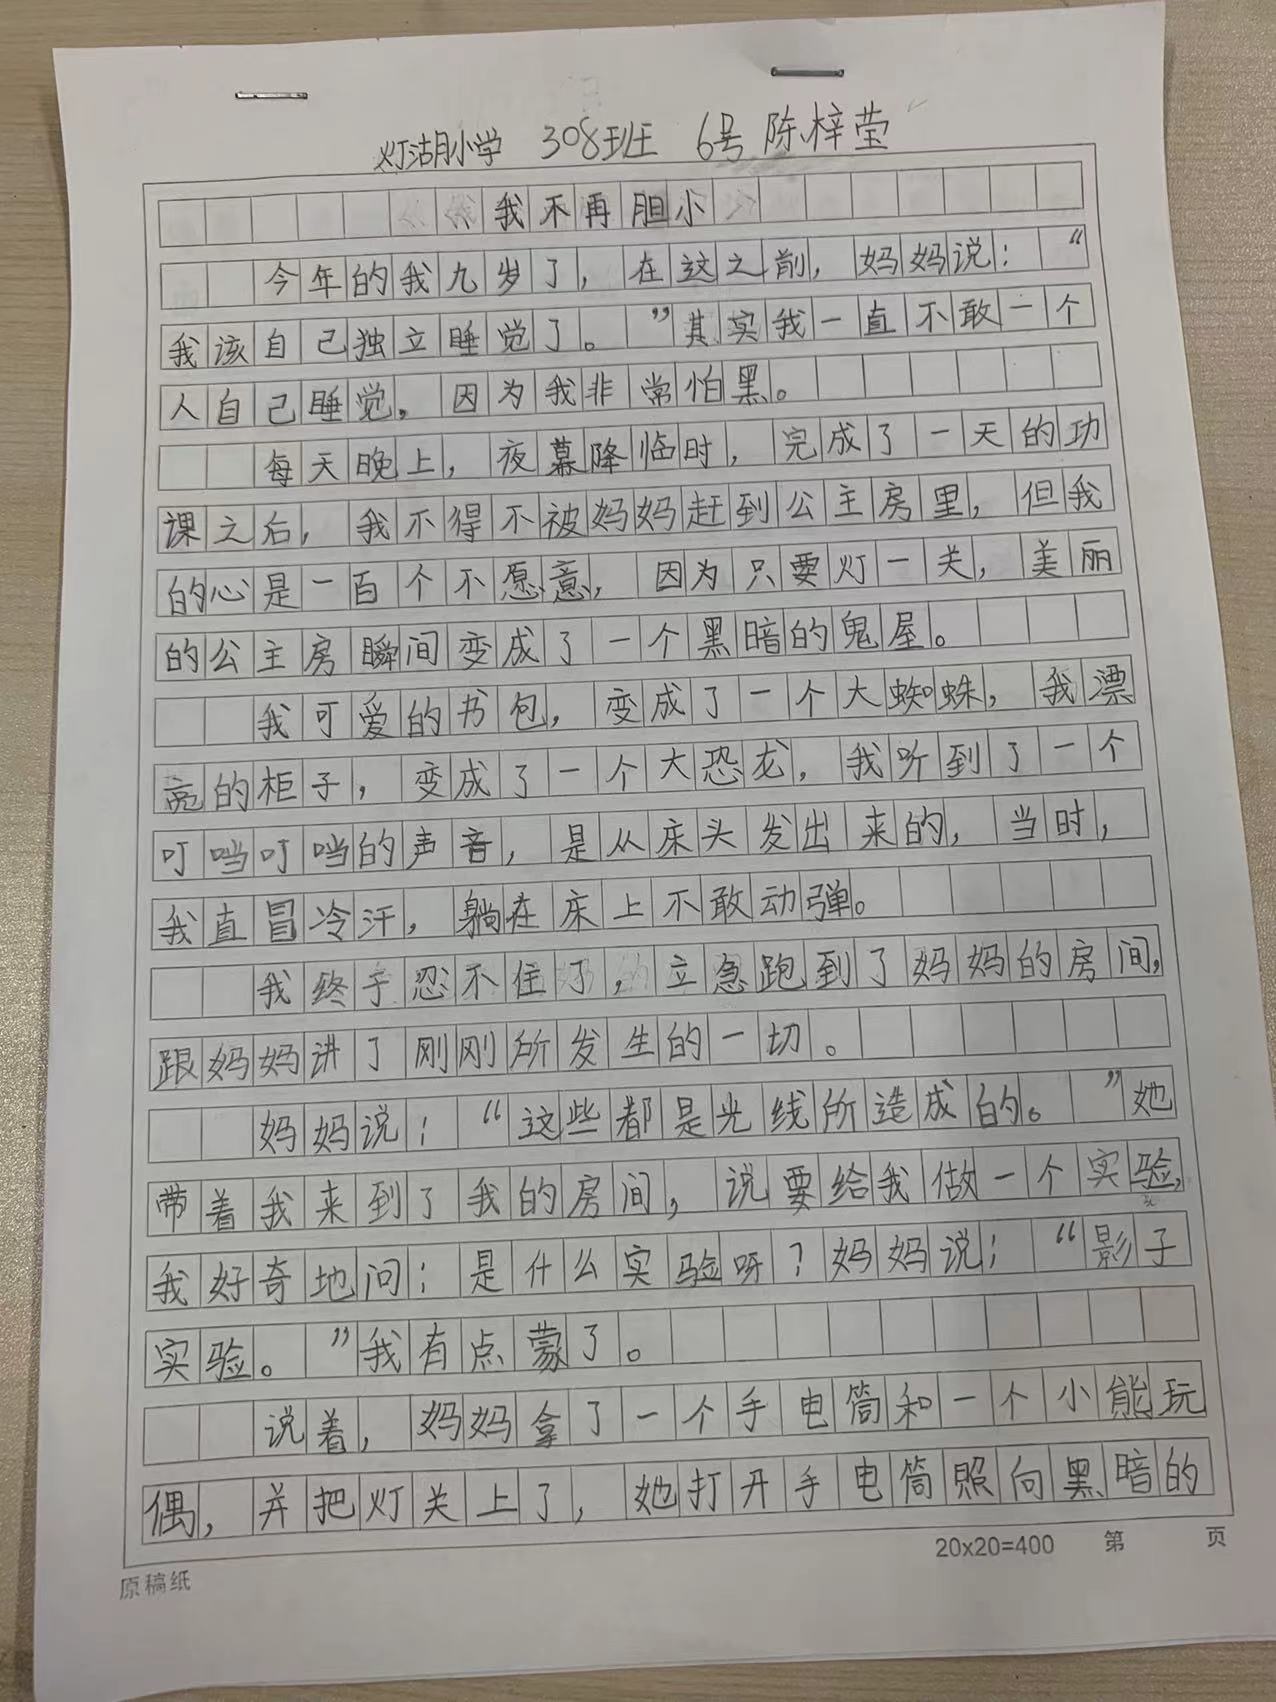 灯湖小学 308班 6号 陈梓莹
我不再胆小
今年的我九岁了，在这之前，妈妈说：“
我该自己独立睡觉了。”其实我一直不敢一个
人自己睡觉，因为我非常怕黑。
每天晚上，夜幕降临时，完成了一天的功
课之后，我不得不被妈妈赶到公主房里，但我
的心是一百个不愿意，因为只要灯一关，美丽
的公主房瞬间变成了一个黑暗的鬼屋。
我可爱的书包，变成了一个大蜘蛛，我漂
亮的柜子，变成了一个大恐龙，我听到了一个
叮当叮当的声音，是从床头发出来的，当时，
我直冒冷汗，躺在床上不敢动弹。
我终于忍不住了，立急跑到了妈妈的房间，
跟妈妈讲了刚刚所发生的一切。
妈妈说：“这些都是光线所造成的。”她
带着我来到了我的房间，说要给我做一个实验，
我好奇地问：是什么实验呀？妈妈说：“影子
实验。”我有点蒙了。
说着，妈妈拿了一个手电筒和一个小能玩
偶，并把灯关上了，她打开手电筒照向黑暗的
20x20=400 第 页
原稿纸